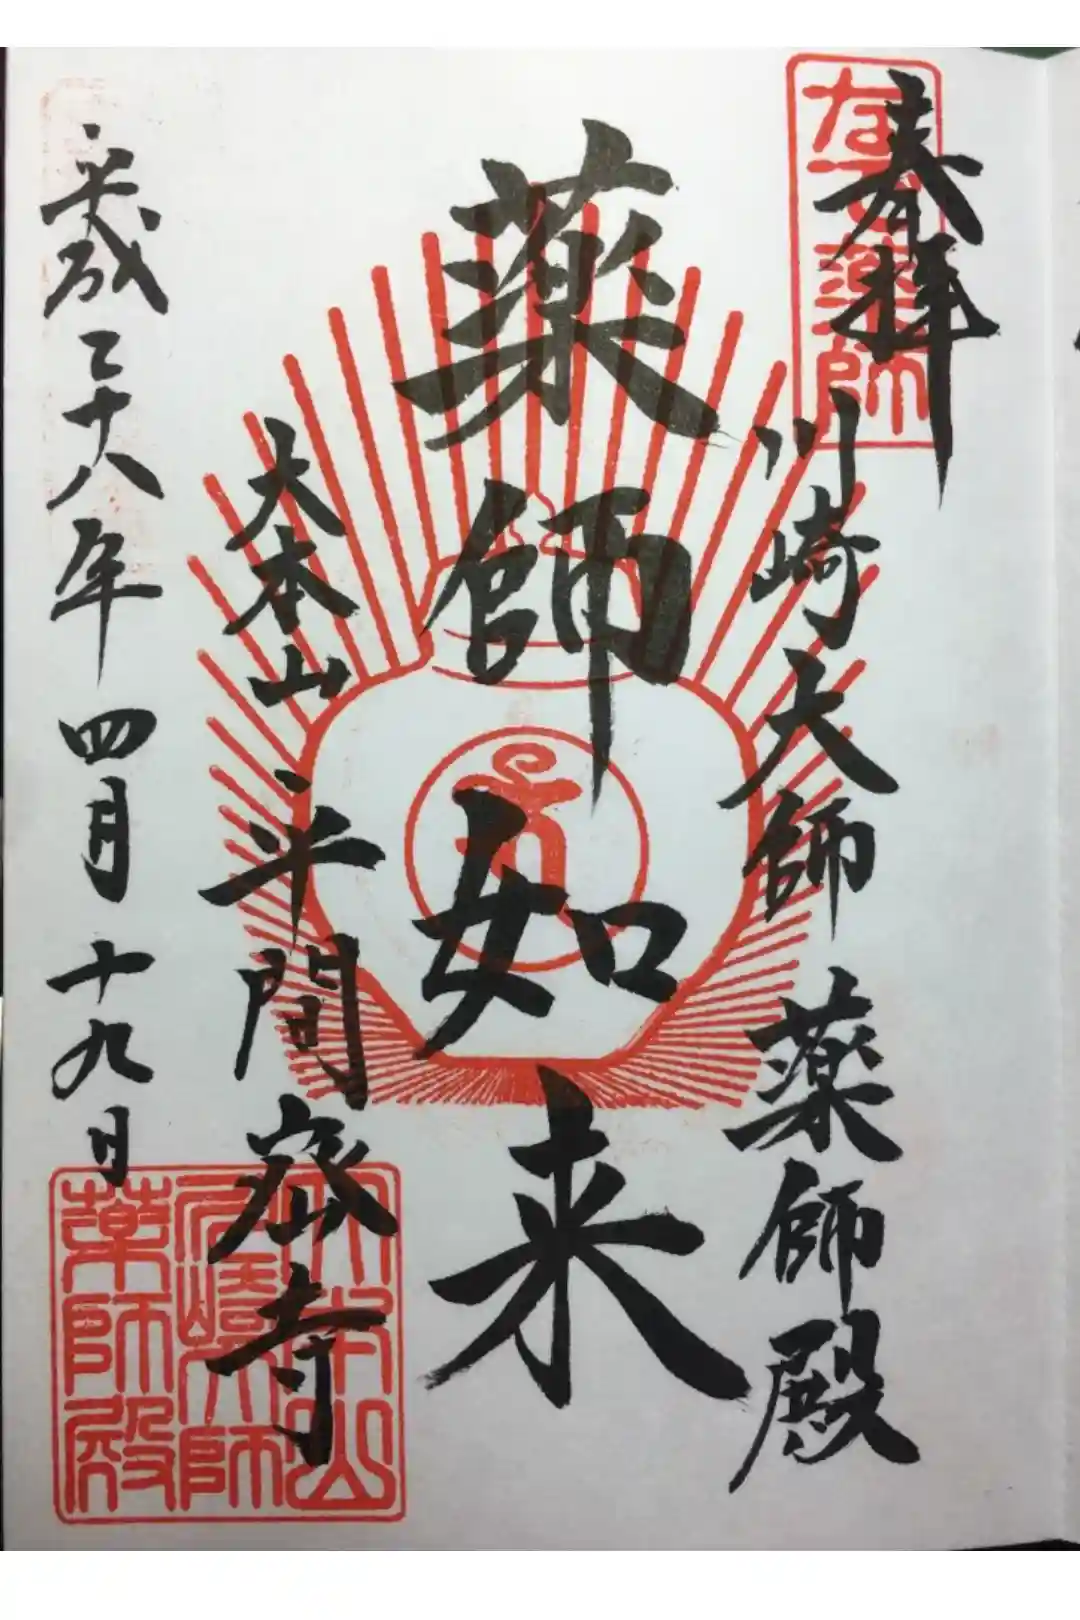 奉拝
川崎大師 薬師殿
薬師如来
大本山 平間寺
平成二十八年 四月 十九日
なで薬師
大本山
川崎大師
薬師殿